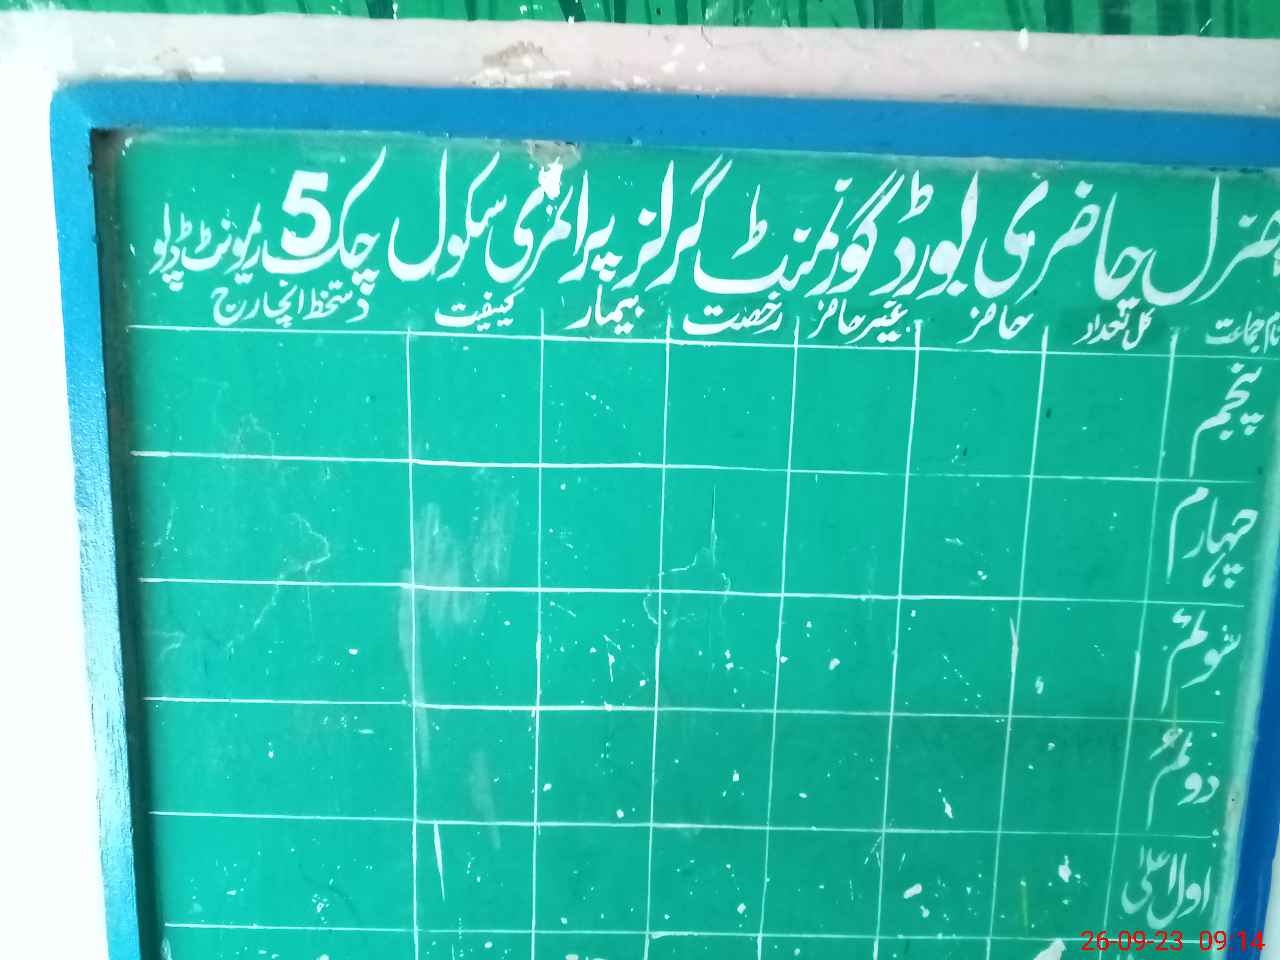 جنرل حاضری بورڈ گورنمنٹ گرلز پرائمری سکول چک 5 ریمونٹ ڈپو
نام جماعت کل تعداد حاضر غیر حاضر رخصت بیمار کیفیت دستخط انچارج
پنجم
چہارم
سوئم
دوئم
اول اعلیٰ
26-09-23 09:14